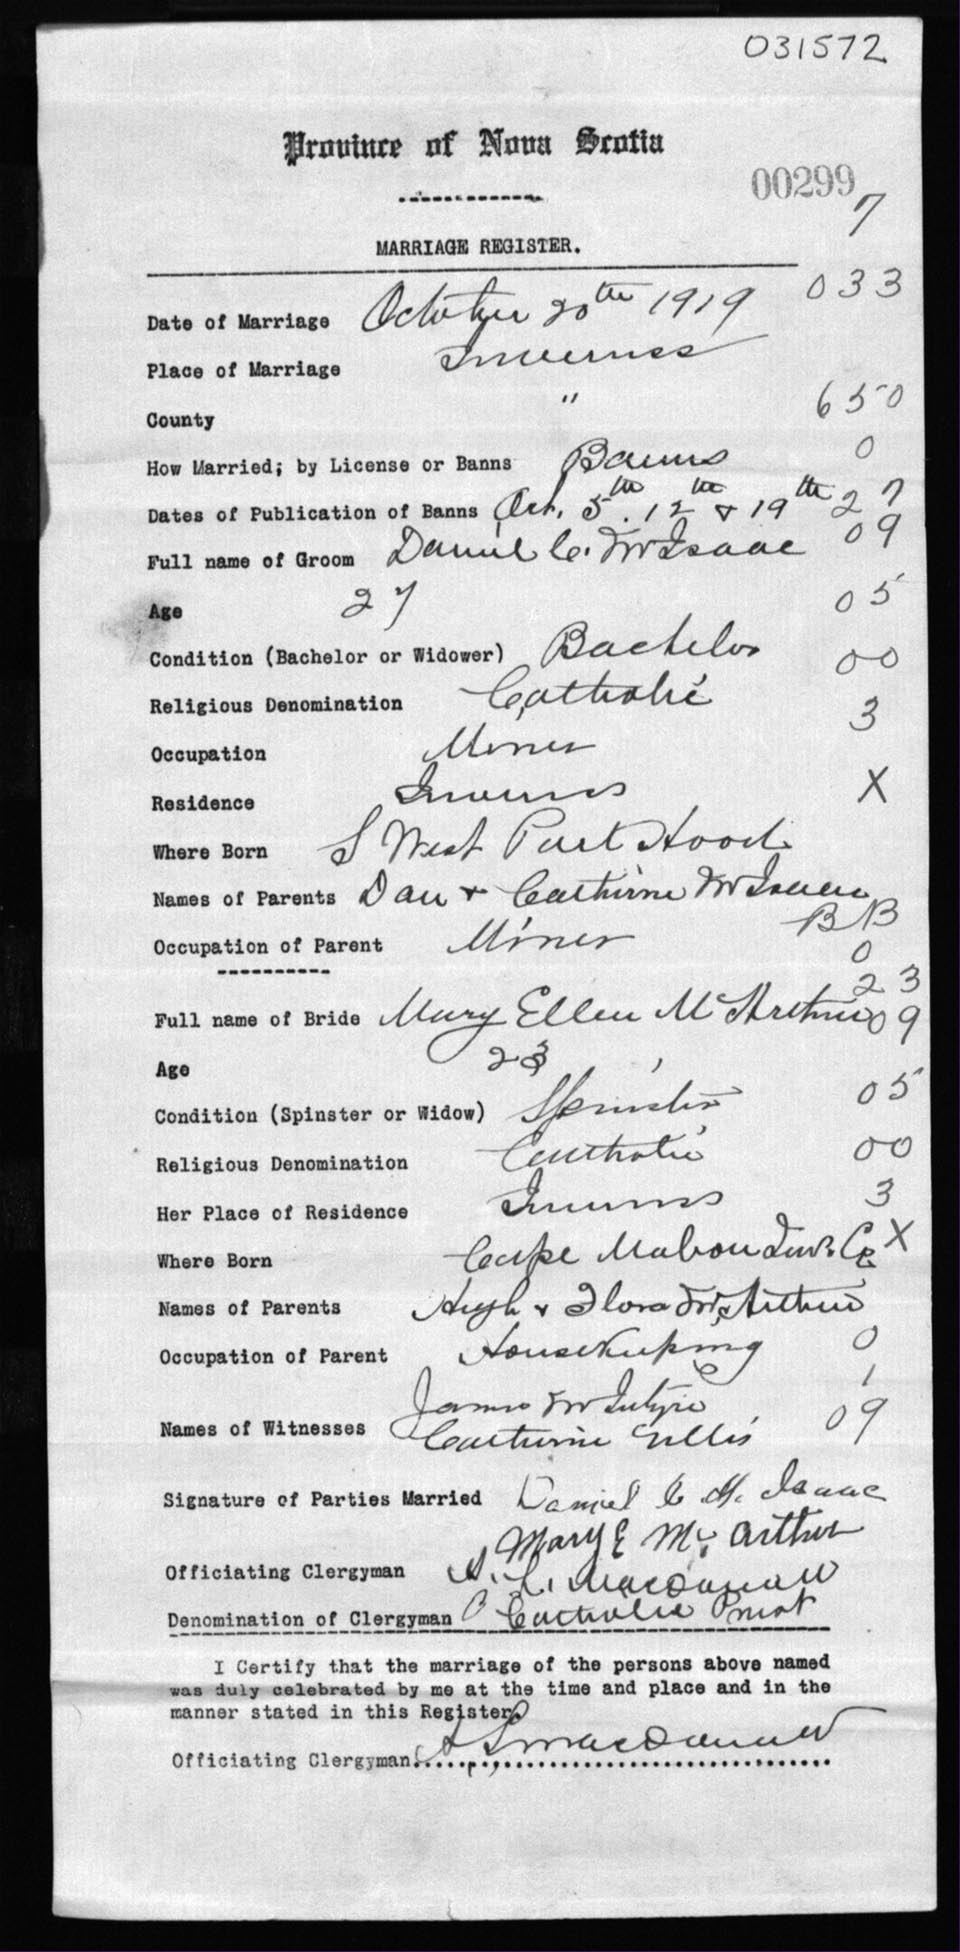 031572
Province of Nova Scotia
00299
7
MARRIAGE REGISTER.
033
Date of Marriage October 20th 1919
Place of Marriage Inverness
County " 650
How Married; by License or Banns Banns 0
Dates of Publication of Banns Oct. 5th. 12th & 19th 27
Full name of Groom Daniel C. McIsaac 09
Age 27 05
Condition (Bachelor or Widower) Bachelor 00
Religious Denomination Catholic 3
Occupation Miner
Residence Inverness X
Where Born S West Port Hood
Names of Parents Dan & Catherine McIsaac
BB
Occupation of Parent Miner 0
23
Full name of Bride Mary Ellen McArthur 09
Age 23
Condition (Spinster or Widow) Spinster 05
Religious Denomination Catholic 00
Her Place of Residence Inverness 3
Where Born Cape Mabou Inv. Co X
Names of Parents Hugh & Flora McArthur
Occupation of Parent Housekeeping 0
1
James McIntyre
Names of Witnesses Catherine Gillis 09
Signature of Parties Married Daniel C Mc Isaac
Mary E Mc Arthur
Officiating Clergyman A. L. MacDonald
Denomination of Clergyman Catholic Priest
I Certify that the marriage of the persons above named
was duly celebrated by me at the time and place and in the
manner stated in this Register.
Officiating Clergyman A L MacDonald